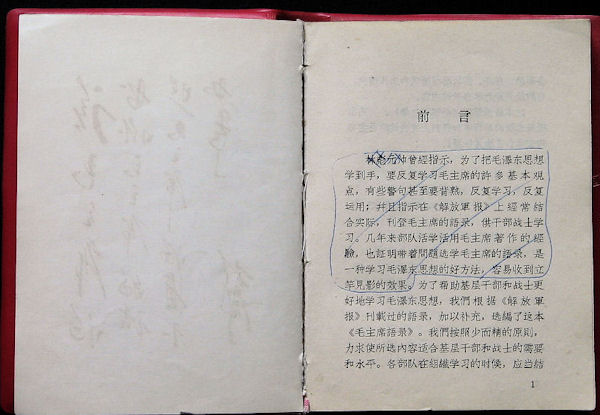 前言
林彪元帅曾經指示，为了把毛澤东思想
学到手，要反复学习毛主席的許多基本观
点，有些警句甚至要背熟，反复学习，反复
运用；并且指示在《解放軍报》上經常結
合实际，刊登毛主席的語录，供干部战士学
习。几年来部队活学活用毛主席著作的經
驗，也証明带着問題选学毛主席的語录，是
一种学习毛澤东思想的好方法，容易收到立
竿見影的效果。为了帮助基层干部和战士更
好地学习毛澤东思想，我們根据《解放軍
报》刊載过的語录，加以补充，选編了这本
《毛主席語录》。我們按照少而精的原則，
力求使所选內容适合基层干部和战士的需要
和水平。各部队在組織学习的时候，应当結
1